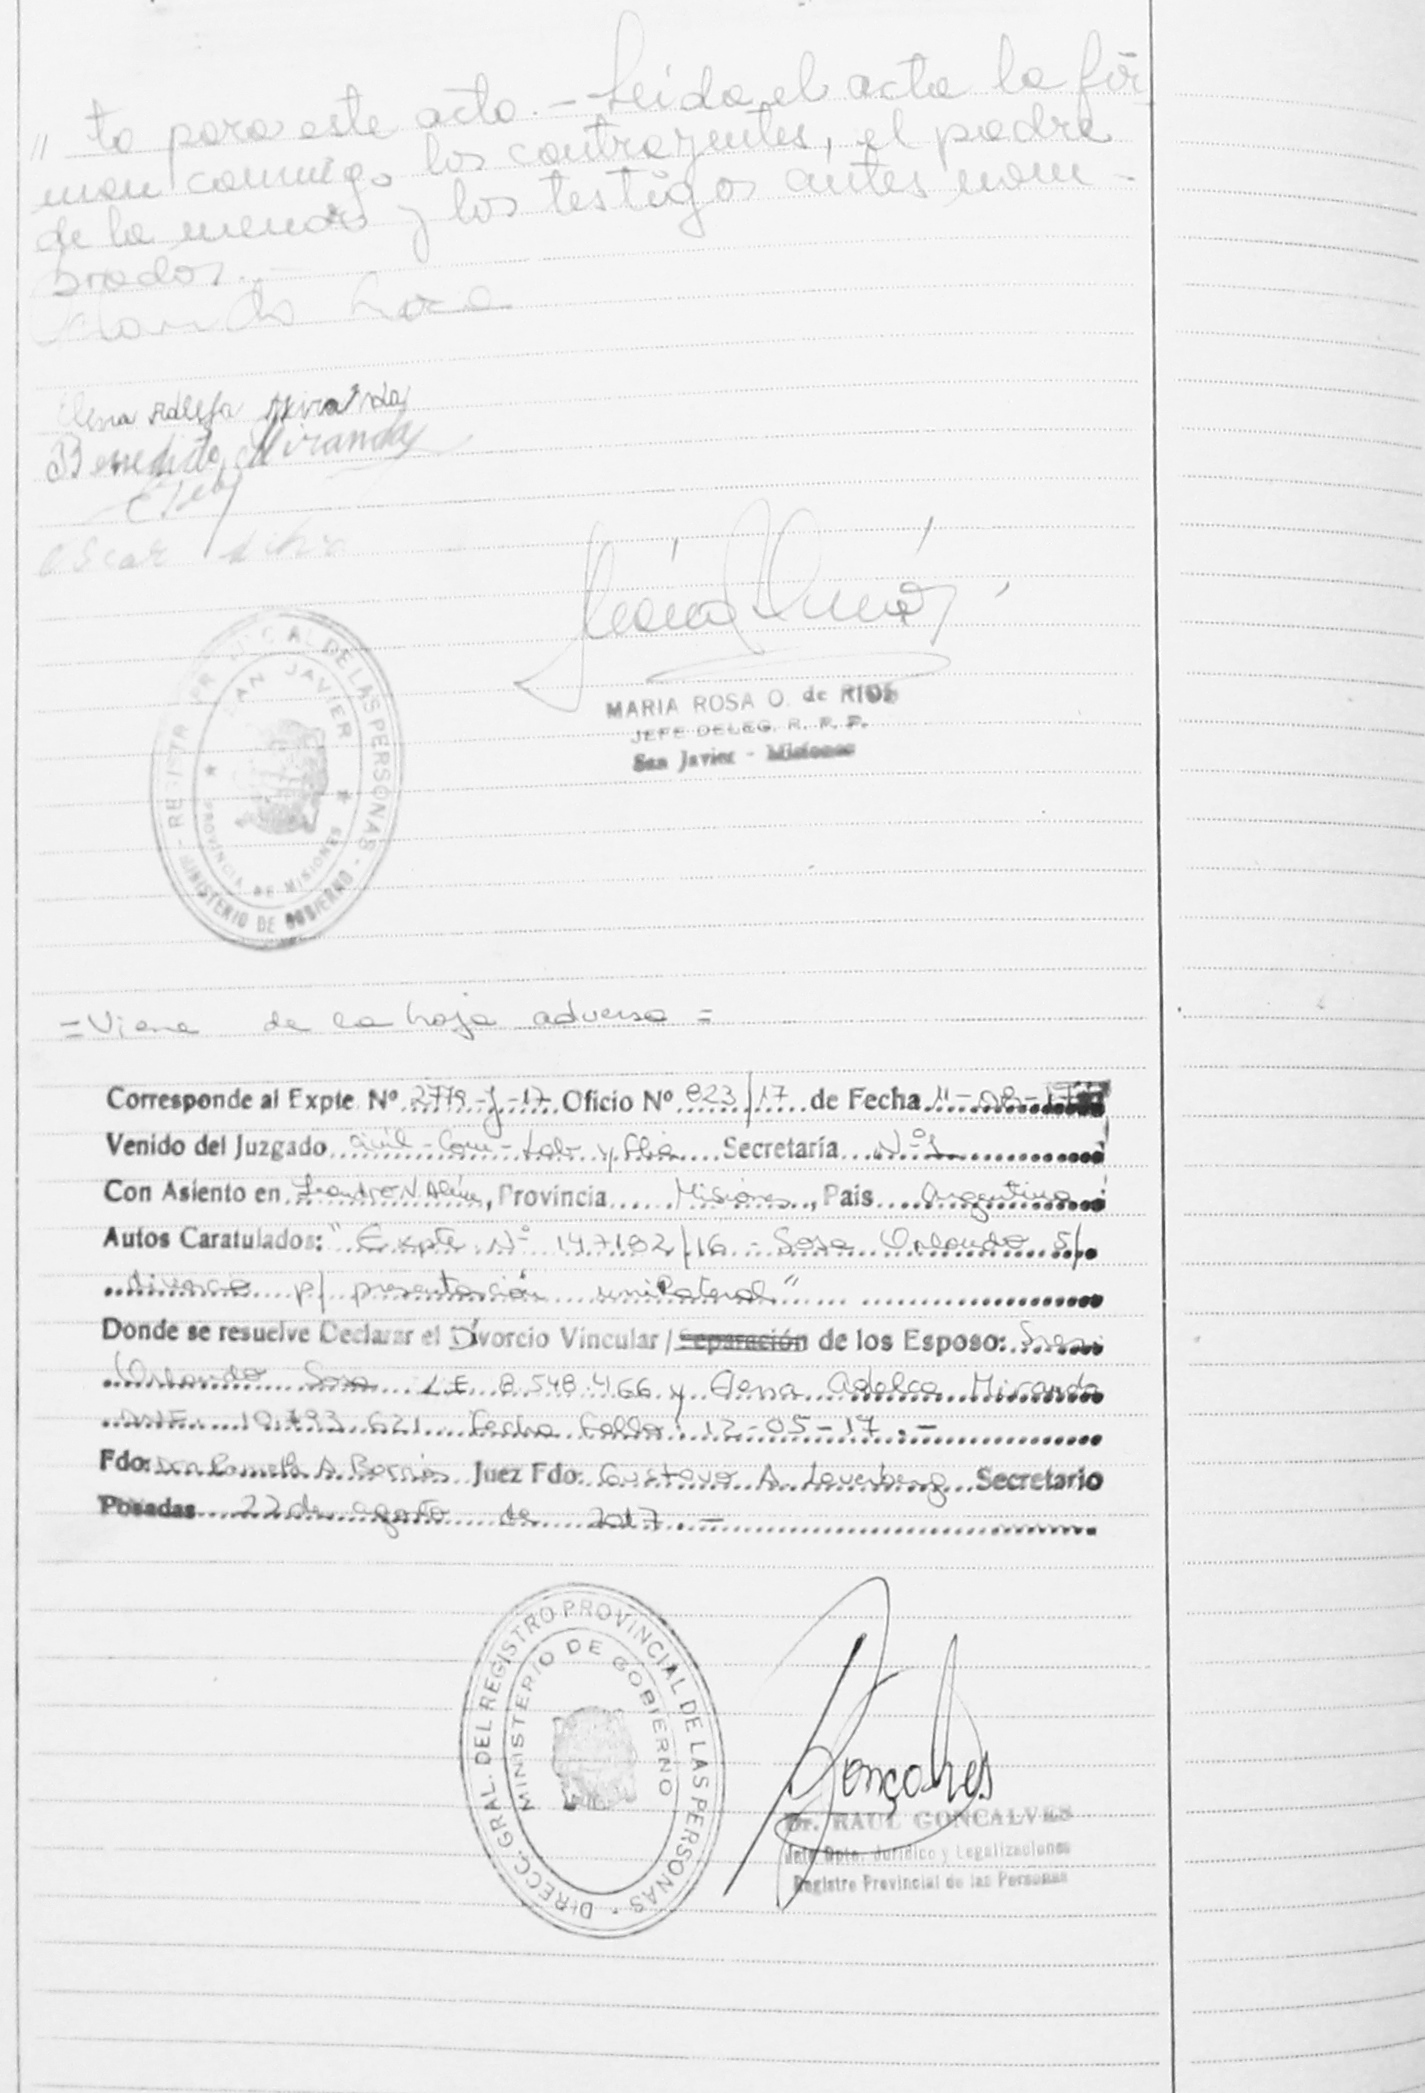 " to para este acto. - Leida el acta la fir-
man conmigo los contrayentes, el padre
de la menor y los testigos antes nom-
brados.-
Orlando Sosa
Elena Adelfa Miranda
Benedito Miranda
Oscar
REGISTRO PROVINCIAL DE LAS PERSONAS - MINISTERIO DE GOBIERNO -
SAN JAVIER ★ PROVINCIA DE MISIONES ★
MARIA ROSA O. de RIOS
JEFE DELEG. R. P. P.
San Javier - Misiones
= Viene de la hoja adversa =
Corresponde al Expte. Nº 2779-J-17 Oficio Nº 823/17 de Fecha 11-08-17
Venido del Juzgado Civil - Com - Lab y Flia Secretaría Nº 1
Con Asiento en Leandro N. Alem, Provincia Misiones, Pais Argentina
Autos Caratulados: "Expte Nº 147182/16 - Sosa Orlando S/
divorcio p/ presentación unilateral"
Donde se resuelve Declarar el Divorcio Vincular / Separación de los Esposo: Sres:
Orlando Sosa L.E 8.548.466 y Elena Adelfa Miranda
DNI. 10.793.621 Fecha Fallo: 12-05-17.-
Fdo: Dra Pamela A. Barrios Juez Fdo: Gustavo A. Loverberg Secretario
Posadas 22 de agosto de 2017.-
DIRECC. GRAL. DEL REGISTRO PROVINCIAL DE LAS PERSONAS
MINISTERIO DE GOBIERNO
Gonçalves
Dr. RAUL GONCALVES
Jefe Dpto. Jurídico y Legalizaciones
Registro Provincial de las Personas